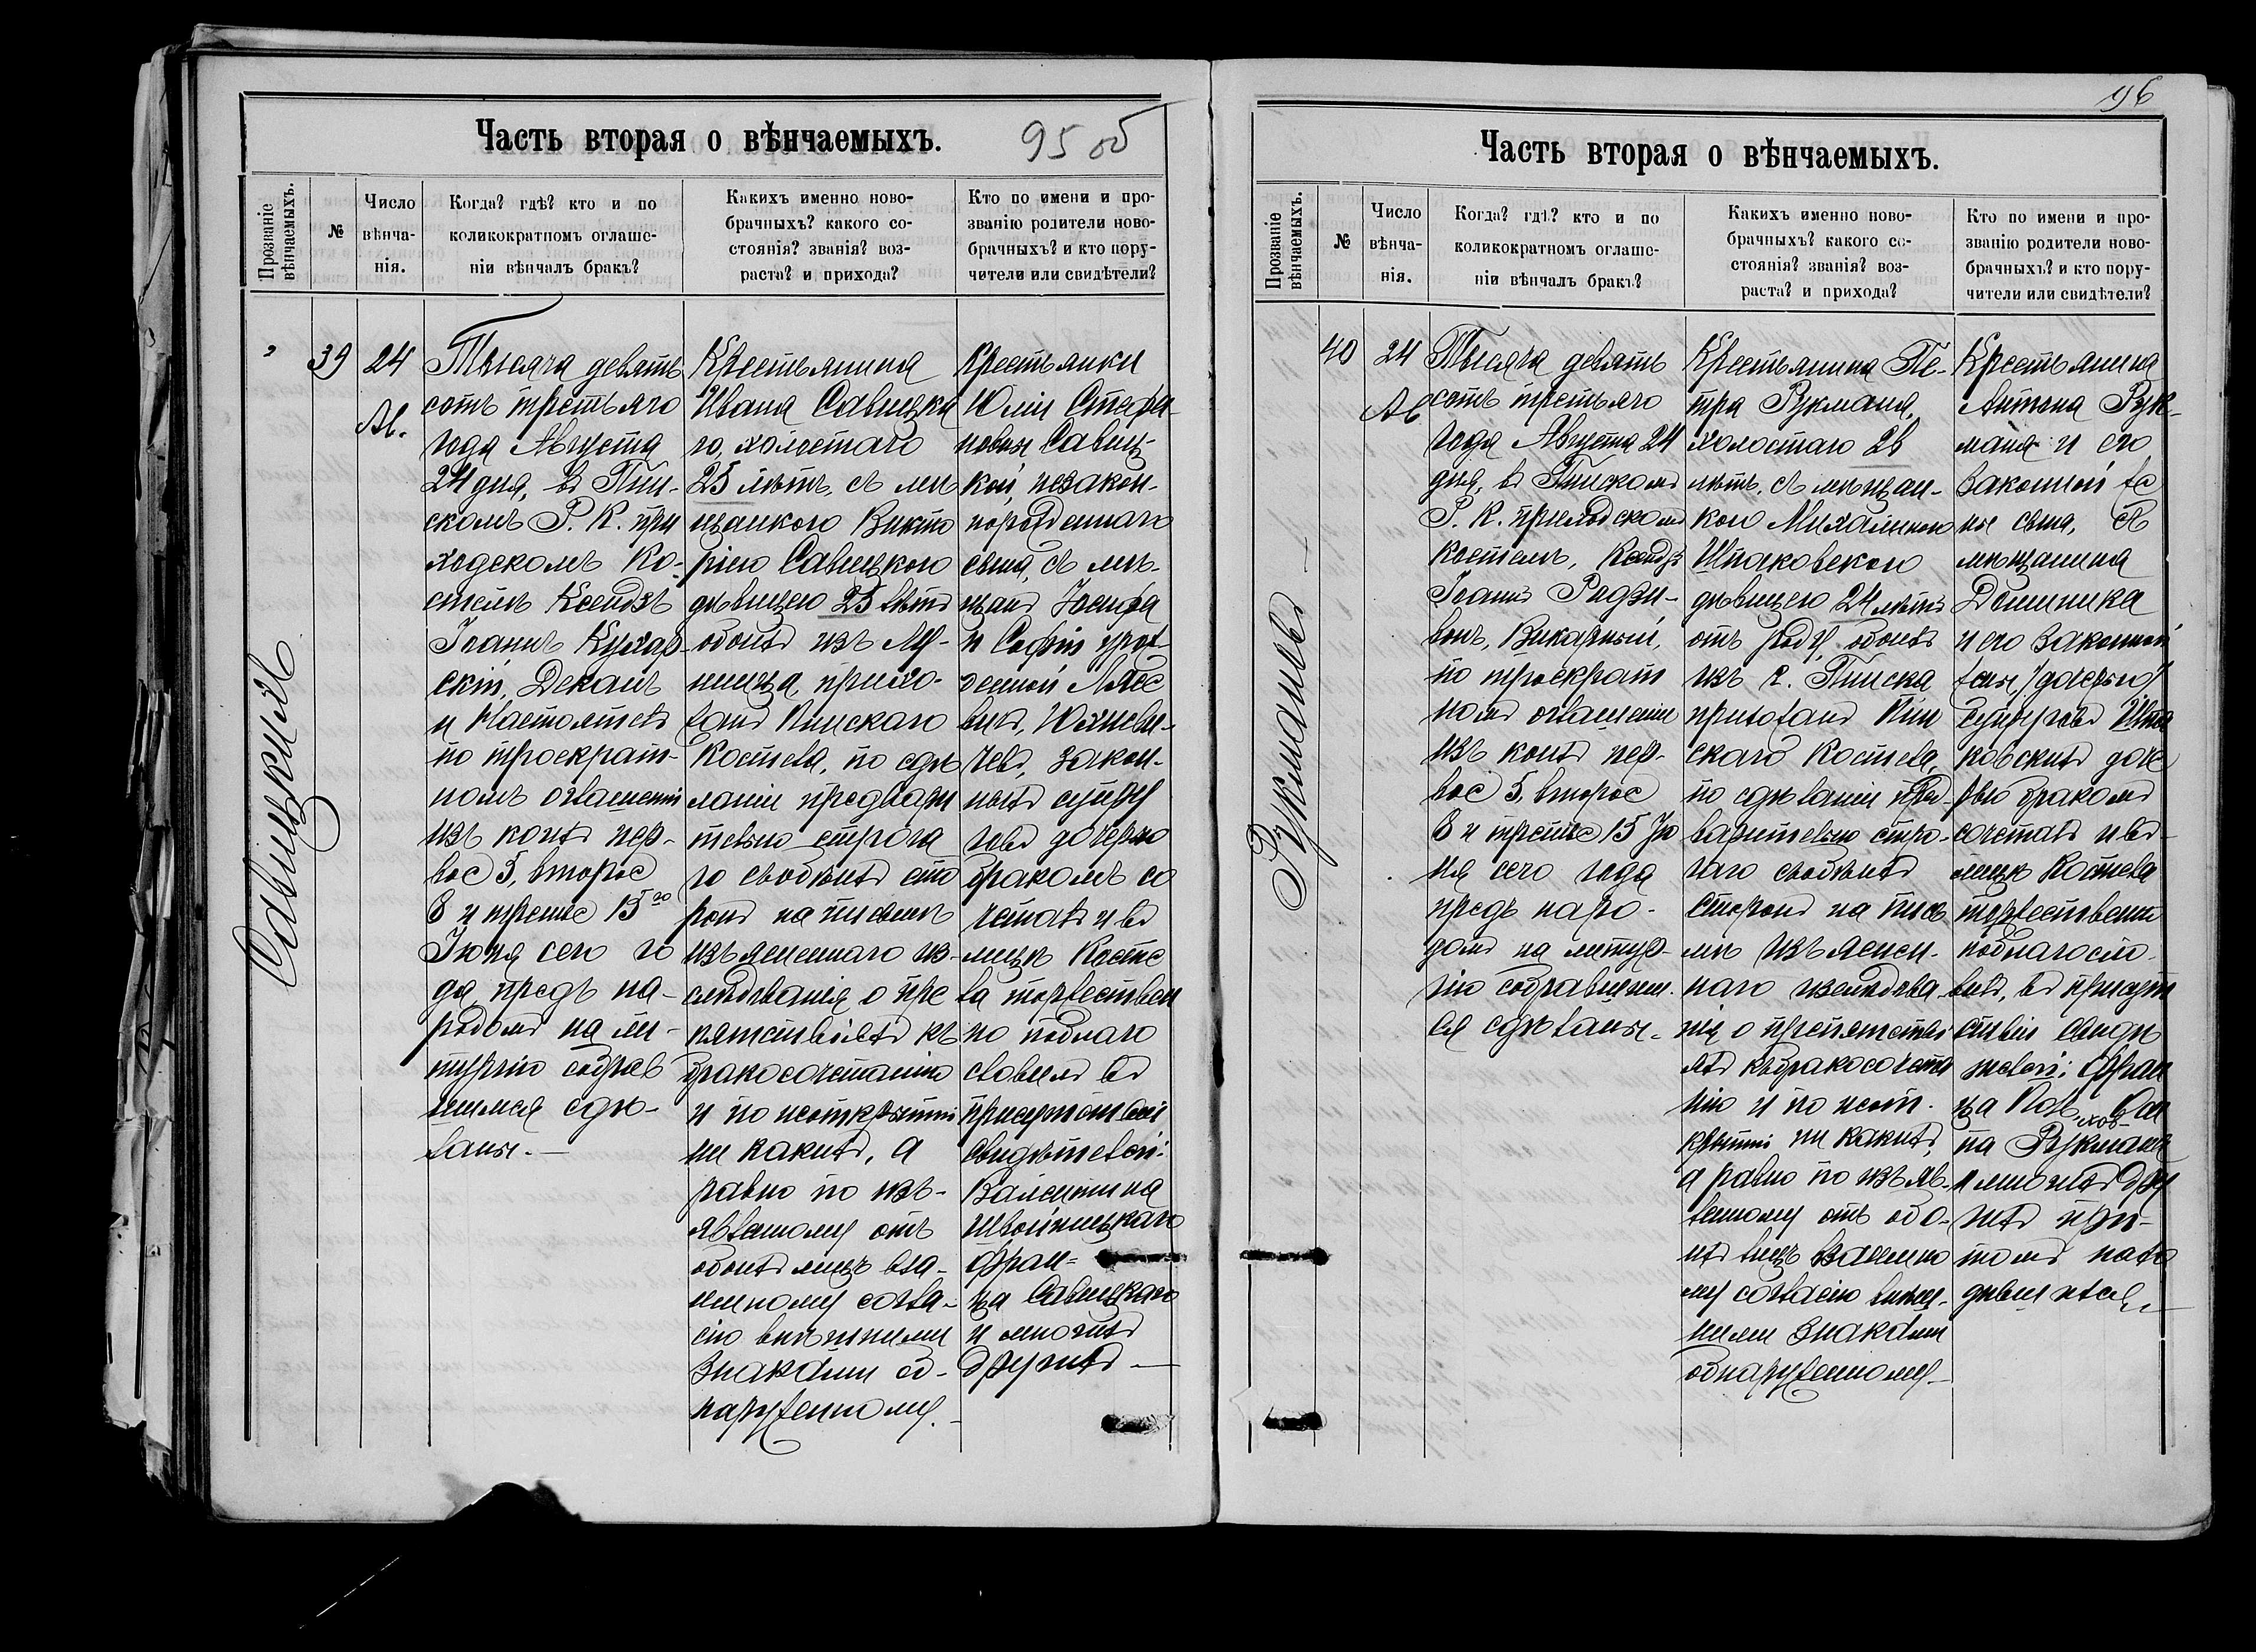 Часть вторая о вѣнчаемыхъ.
95 об
Прозваніе вѣнчаемыхъ.
№
Число вѣнча-
нія.
Когда? гдѣ? кто и по
коликократномъ оглаше-
ніи вѣнчалъ бракъ?
Какихъ именно ново-
брачныхъ? какого со-
стоянія? званія? воз-
раста? и прихода?
Кто по имени и про-
званію родители ново-
брачныхъ? и кто пору-
чители или свидѣтели?
Савицкихъ
39
24
Ав.
Тысяча девять
сотъ третьяго
года Августа
24 дня, въ Пин-
скомъ Р. К. при
ходскомъ Ко-
стелѣ Ксендзъ
Іоаннъ Кухар-
скій, Деканъ
и Настоятель
по троекрат-
номъ оглашеніи
изъ коихъ пер-
вое 5, второе
8 и третіе 15го
Іюня сего го
да предъ на-
родомъ на ли-
тургію собрав
шимся сдѣ-
ланы.—
Крестьянина
Ивана Савицка
го, холостаго
25 лѣтъ, съ мѣ
щанкою Викто
ріею Савицкою
дѣвицею 25 лѣтъ
обоихъ изъ
прихо-
жанъ Пинскаго
Костела, по сдѣ
ланіи предвари
тельно строга
го съ обоихъ сто
ронъ на письмѣ
изъясненнаго из-
слѣдованія о пре
пятствіяхъ къ
бракосочетанію
и по неоткрытіи
ни какихъ, а
равно по изъ-
явленному отъ
обоихъ лицъ вза-
имному согла-
сію внѣшними
знаками об-
наруженному.
Крестьянки
Юліи Стефа-
новны Савиц-
кой, незакон-
норожденнаго
сына, съ мѣ-
щанъ Іосифа
и Софіи урож-
денной
законныхъ супру
говъ дочерью
бракомъ со
четалъ и въ
лицѣ Косте
ла торжествен
но поблаго
словилъ въ
присутствіи
свидѣтелей:
Валентина
Фран=
ца Савицкаго
и многихъ
другихъ —
96
Часть вторая о вѣнчаемыхъ.
Прозваніе вѣнчаемыхъ.
№
Число вѣнча-
нія.
Когда? гдѣ? кто и по
коликократномъ оглаше-
ніи вѣнчалъ бракъ?
Какихъ именно ново-
брачныхъ? какого со-
стоянія? званія? воз-
раста? и прихода?
Кто по имени и про-
званію родители ново-
брачныхъ? и кто пору-
чители или свидѣтели?
Рукмановъ
40
24
Ав
Тысяча девять
сотъ третьяго
года Августа 24
дня, въ Пинскомъ
Р. К. приходскомъ
костелѣ, Ксендзъ
Іоаннъ Родзе-
вичъ, Викарный,
по троекрат
номъ оглашеніи
изъ коихъ пер-
вое 5, второе
8 и третіе 15 Ію
ня сего года
предъ наро-
домъ на литур-
гію собравшим-
ся сдѣланы.
Крестьянина Пе-
тра Рукмана,
холостаго 26
лѣтъ, съ мѣщан-
кою Михалиною
Шпаковскою
дѣвицею 24 лѣтъ
отъ роду, обоихъ
изъ г. Пинска
прихожанъ Пин
скаго Костела,
по сдѣланіи пред-
варительно стро-
гаго съ обоихъ
сторонъ на пись
мѣ изъяснен-
наго изслѣдова-
нія о препятстві
яхъ къ бракосочета
нію и по неот-
крытіи ни какихъ,
а равно по изъяв-
ленному отъ обо-
ихъ лицъ взаимно
му согласію внѣш-
ними знаками
обнаруженному.—
Крестьянина
Антона Рук-
мана и его
законной же
ны сына, съ
мѣщанина
Доминика
и его законной
жены, /дочерью/
супруговъ Шпа
ковскихъ доче
рью бракомъ
сочеталъ и въ
лицѣ Костела
торжественно
поблагосло-
вилъ, въ присут
ствіи свидѣ
телей: Фран
ца
на Рукмана
и многихъ дру
гихъ при-
томъ нахо
дившихся.—